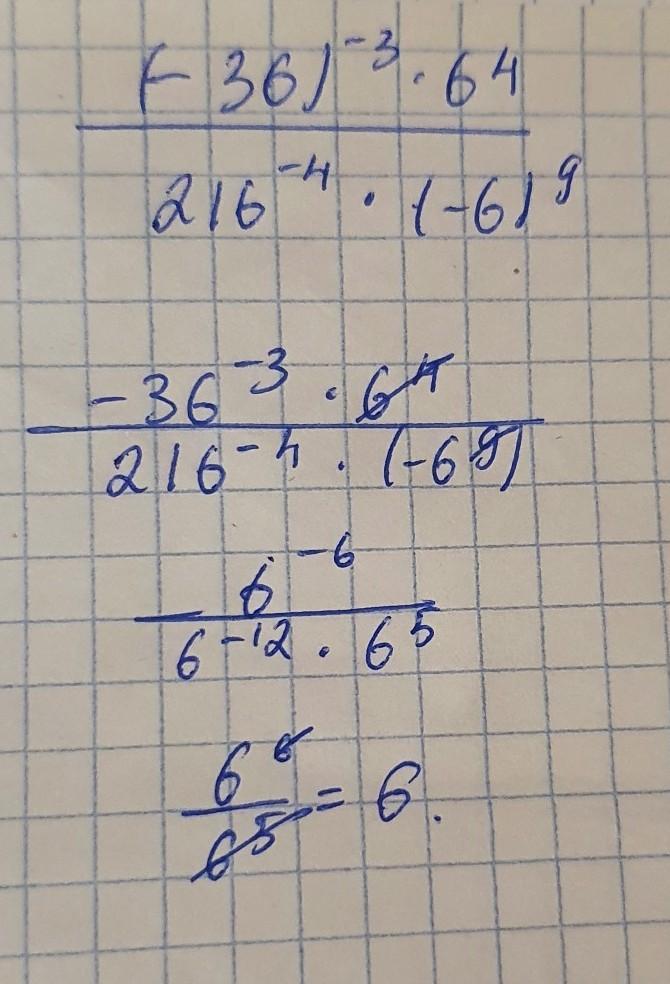 (-36)⁻³ · 6⁴
216⁻⁴ · (-6)⁹
-36⁻³ · 6⁴
216⁻⁴ · (-6⁹)
6⁻⁶
6⁻¹² · 6⁵
6⁶
6⁵ = 6.